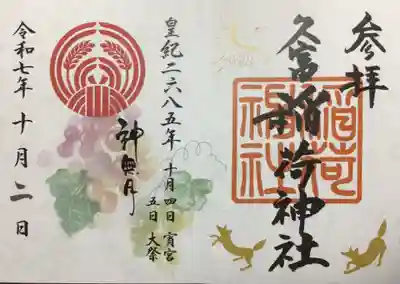 参拝
久富稲荷神社
稲荷神社
皇紀二六八五年 十月四日 宵宮
五日 大祭
神無月
令和七年十月二日